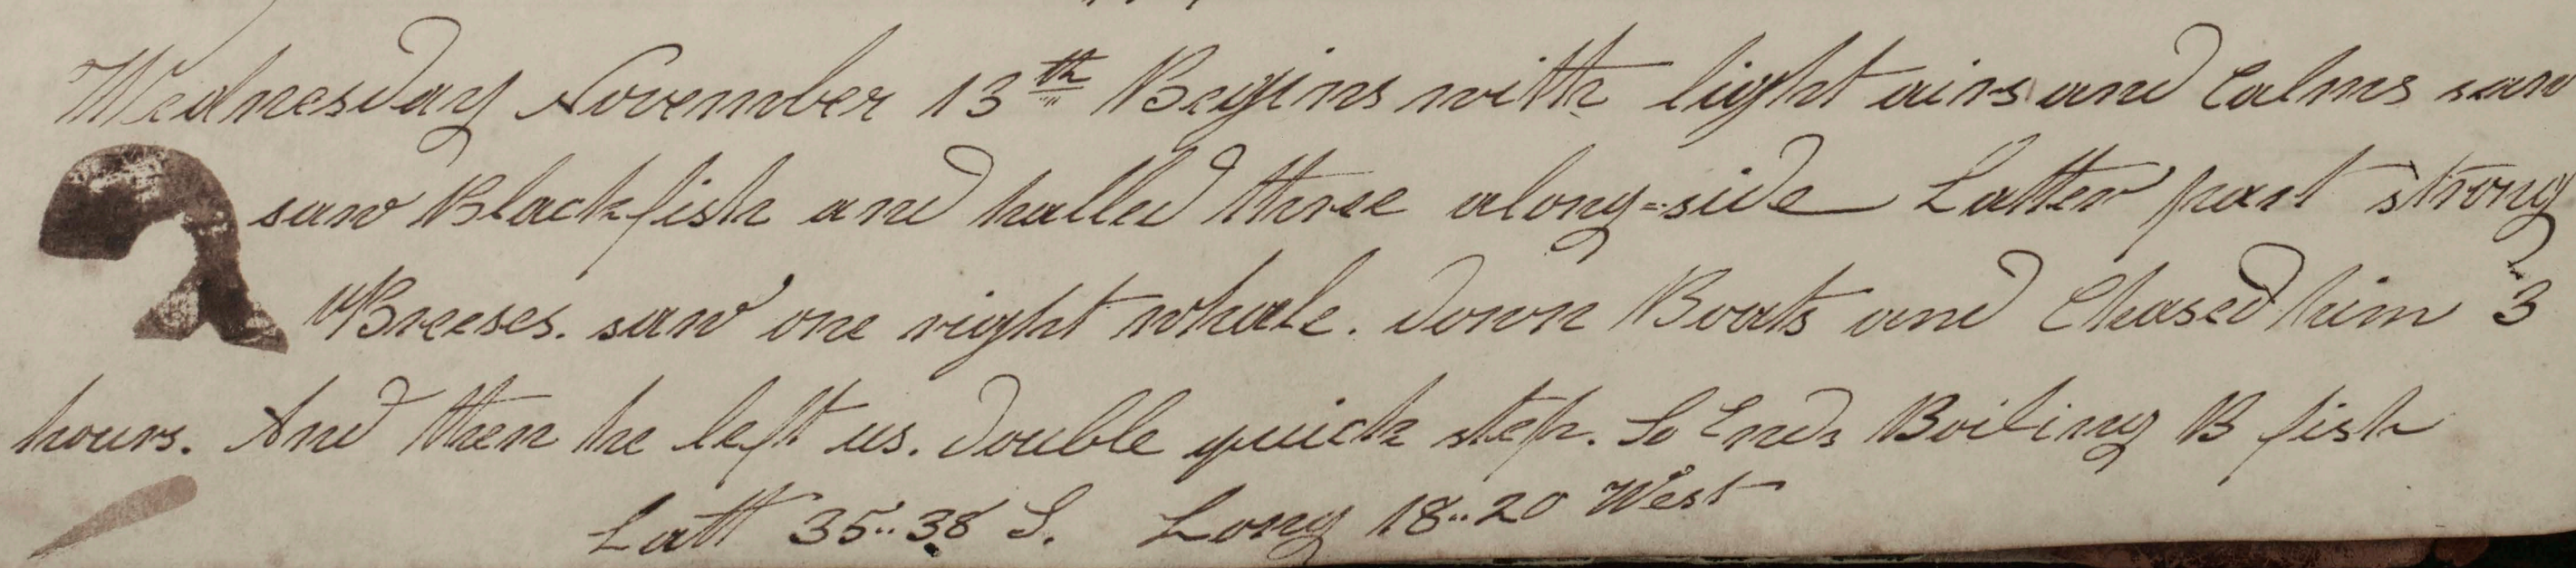 Wednesday November 13th Begins with light airs and Calms saw
saw Blackfish and halled three along-side Latter part strong
Breeses. saw one right whale. Down Boats and Chased him 3
hours. And then he left us. Double quick step. So Ends Boiling B fish
Latt 35..38 S. Long 18..20 West